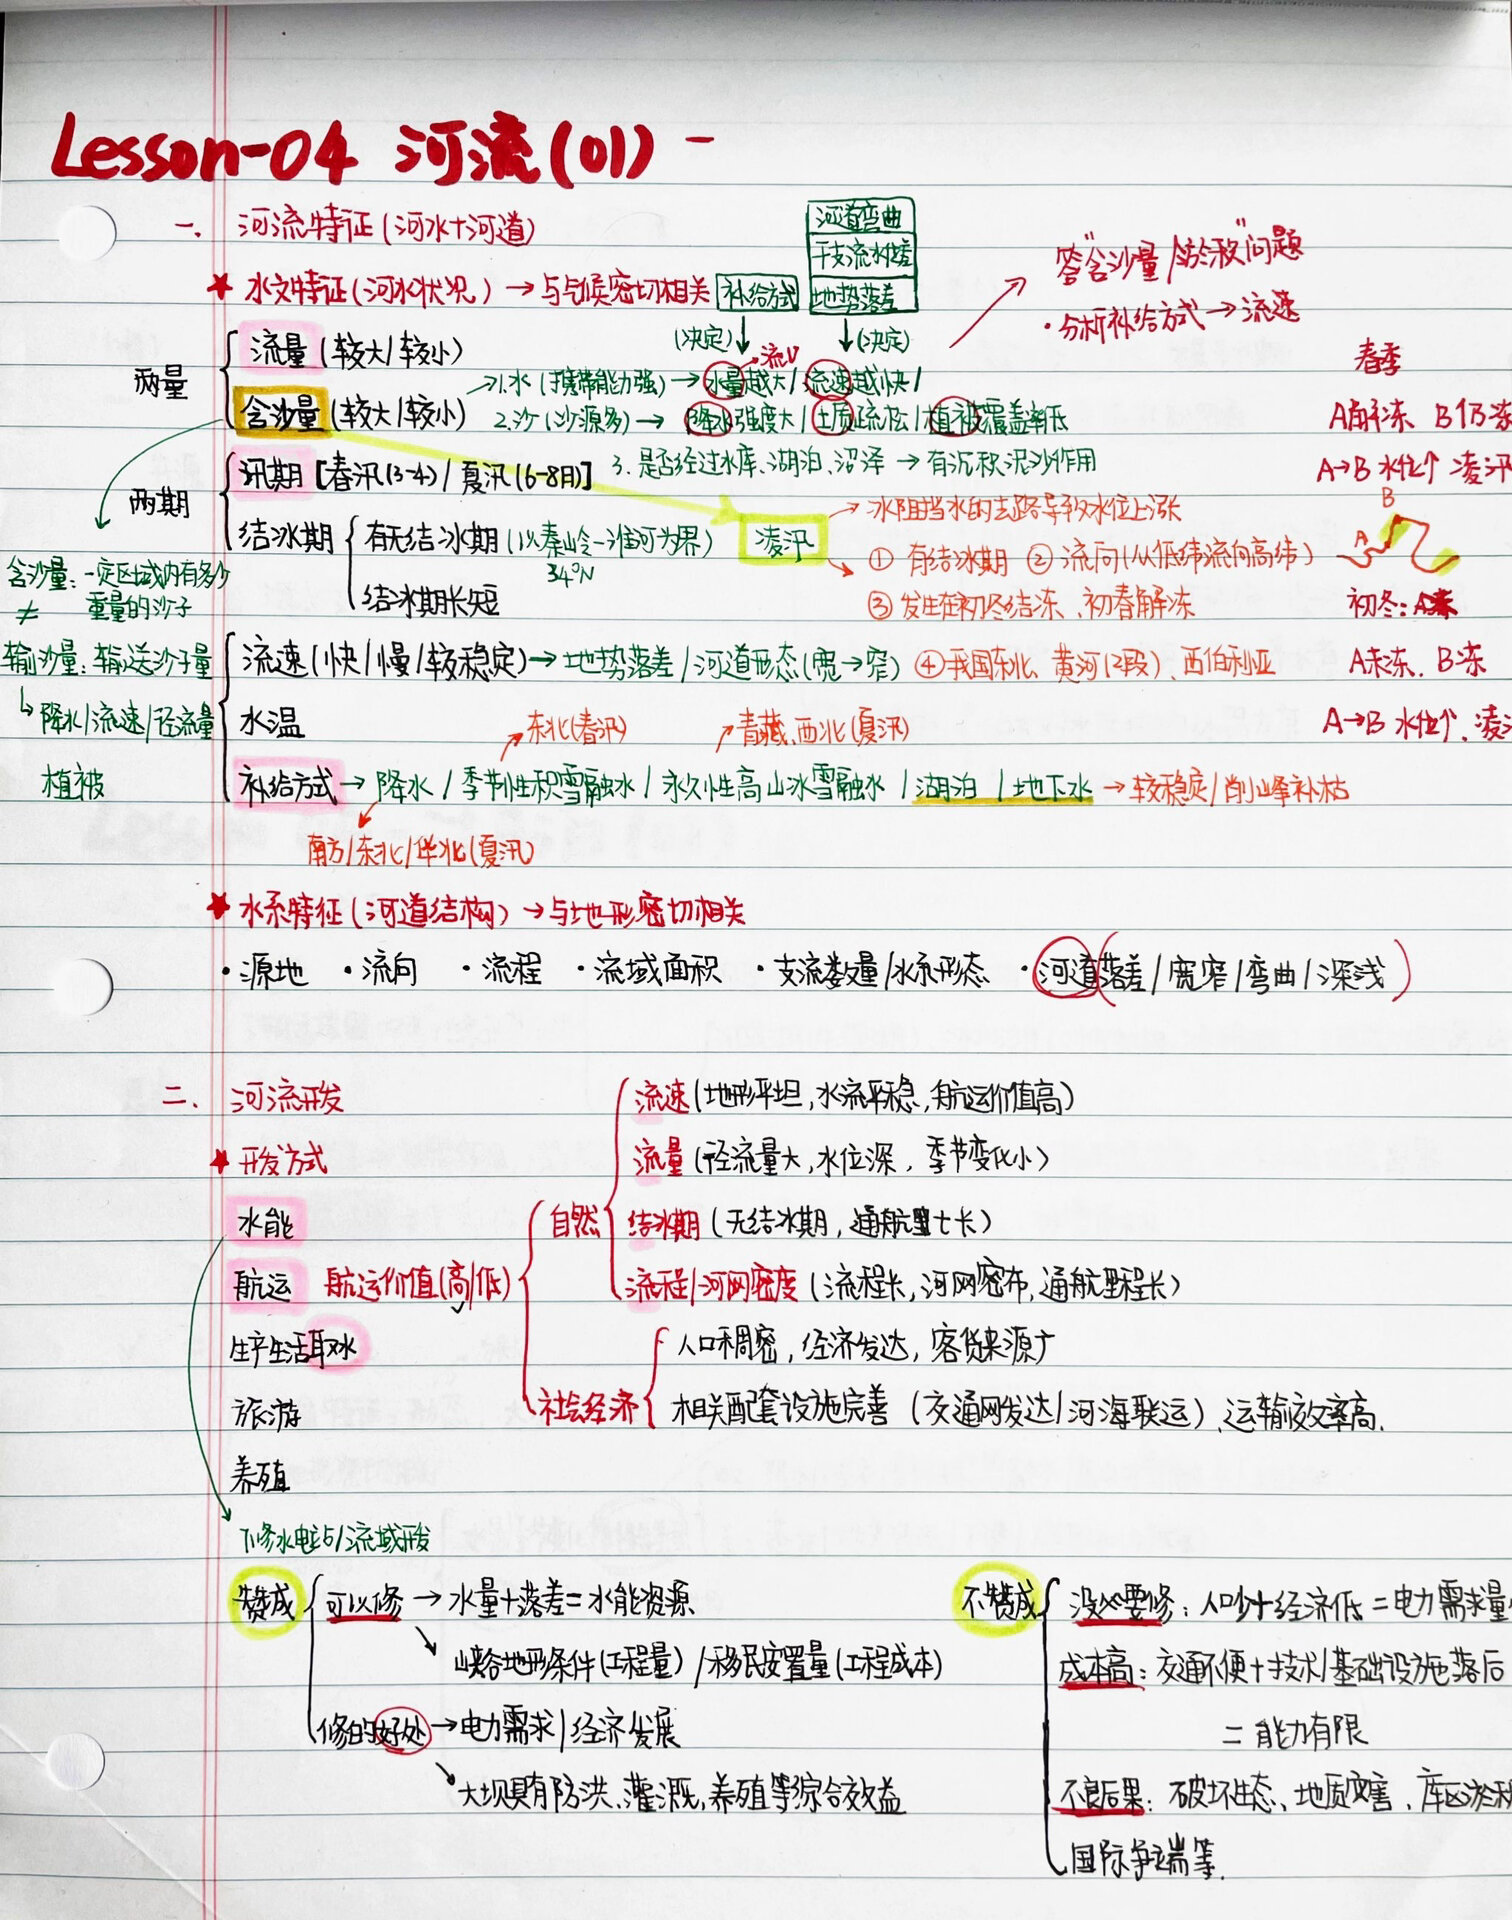 Lesson-04 河流(01) -
一. 河流特征(河水+河道)
河道弯曲
干支流水位差
地势落差
补给方式
★ 水文特征(河水状况) → 与气候密切相关
(决定) (决定)
答"含沙量/淤积"问题
· 分析补给方式 → 流速
两量
流量 (较大/较小)
含沙量 (较大/较小)
流V
→1.水 (携带能力强) → 水量越大/流速越快/
2.沙 (沙源多) → 降水强度大/土质疏松/植被覆盖率低
3. 是否经过水库、湖泊、沼泽 → 有沉积泥沙作用
春季
A解冻、B仍冻
A→B 水位↑ 凌汛
B
A
初冬:
A未冻、B冻
A→B 水位↑、凌汛
两期
汛期 [春汛(3-4) / 夏汛(6-8月)]
结冰期
有无结冰期 (以秦岭-淮河为界)
34°N
结冰期长短
凌汛
→ 冰阻挡水的去路导致水位上涨
① 有结冰期 ② 流向(从低纬流向高纬)
③ 发生在初冬结冻、初春解冻
④ 我国东北、黄河(2段)、西伯利亚
含沙量: 一定区域内有多少
重量的沙子
≠
输沙量: 输送沙子量
↳降水/流速/径流量
植被
流速 (快/慢/较稳定) → 地势落差/河道形态(宽→窄)
水温
东北(春汛) 青藏、西北(夏汛)
补给方式 → 降水 / 季节性积雪融水 / 永久性高山冰雪融水 / 湖泊 / 地下水 → 较稳定/削峰补枯
南方/东北/华北(夏汛)
★ 水系特征(河道结构) → 与地形密切相关
· 源地 · 流向 · 流程 · 流域面积 · 支流数量/水系形态 · 河道(落差/宽窄/弯曲/深浅)
二. 河流开发
★ 开发方式
水能
航运 航运价值(高/低)
生产生活取水
旅游
养殖
自然
流速 (地形平坦,水流平稳,航运价值高)
流量 (径流量大,水位深,季节变化小)
结冰期 (无结冰期,通航里七长)
流程/河网密度 (流程长,河网密布,通航里程长)
社会经济
人口稠密,经济发达,客货来源广
相关配套设施完善 (交通网发达/河海联运)、运输效率高.
修水电站/流域开发
赞成
可以修 → 水量+落差=水能资源
↘ 峡谷地形条件(工程量)/移民安置量(工程成本)
修的好处 → 电力需求/经济发展
↘ 大坝具有防洪、灌溉,养殖等综合效益
不赞成
没必要修: 人口少+经济低 = 电力需求量
成本高: 交通不便+技术/基础设施落后
= 能力有限
不良后果: 破坏生态、地质灾害、库区淤积
国际争端等.